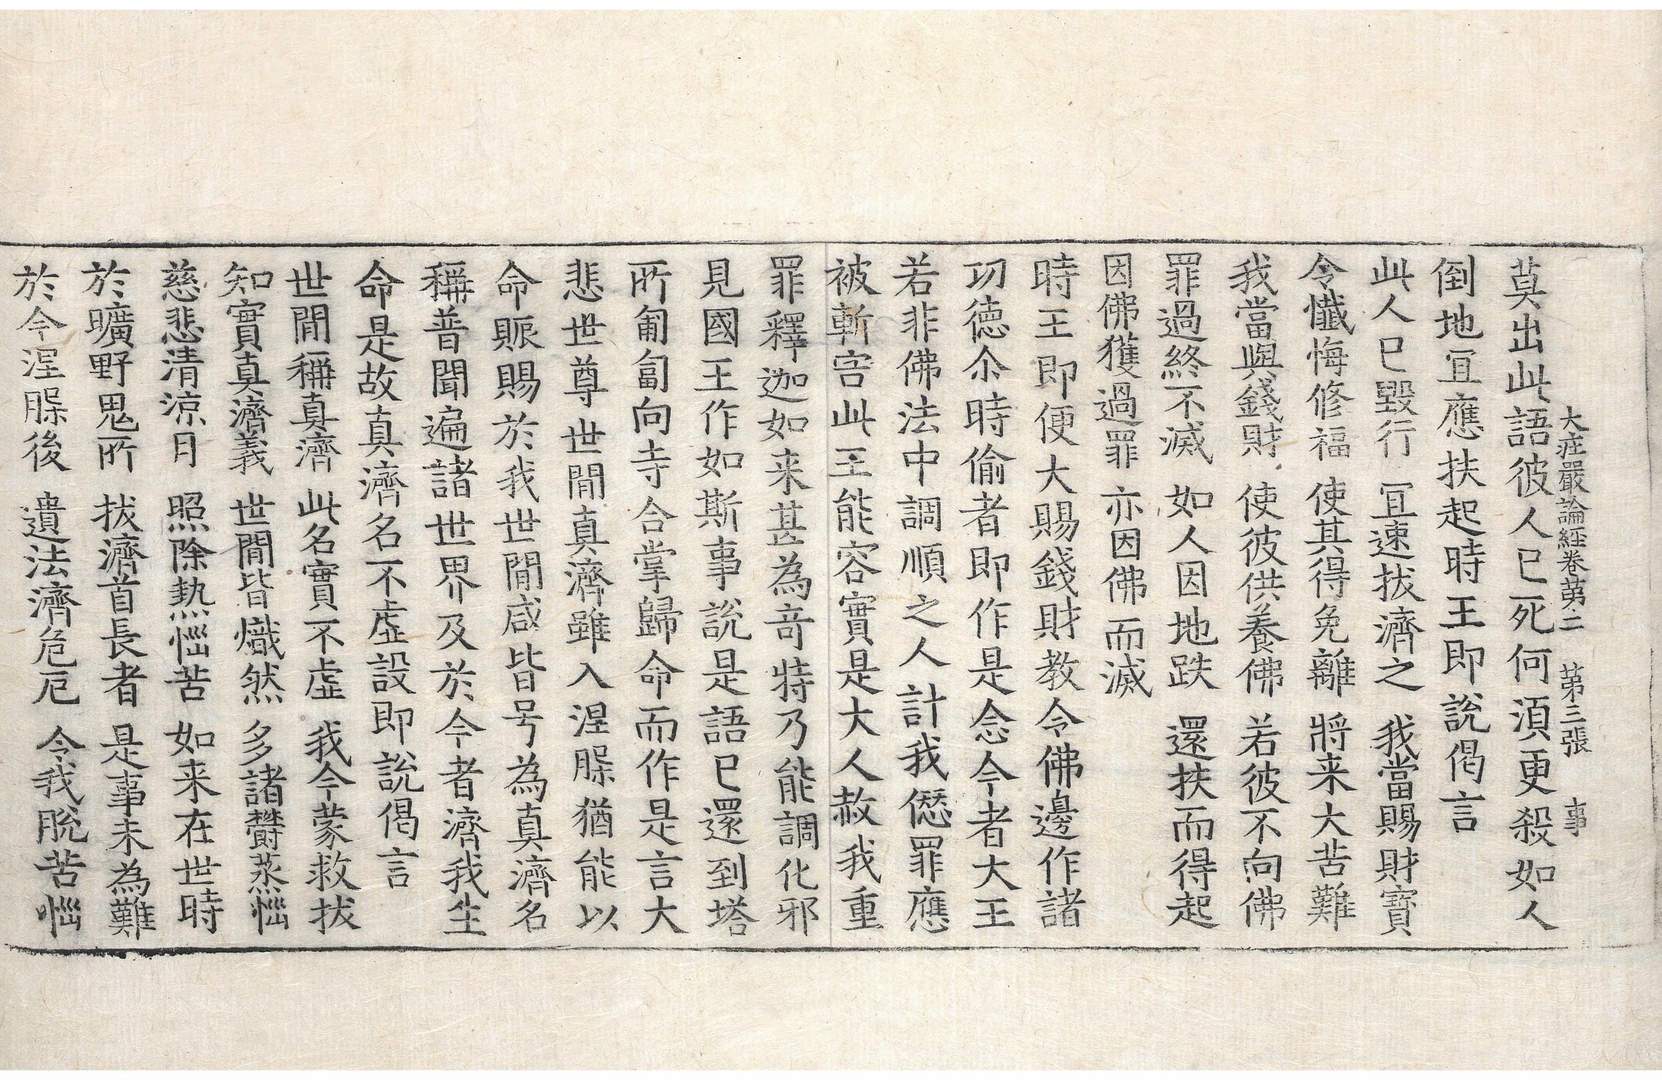 大莊嚴論經卷第二 第三張 事
莫出此語彼人已死何須更殺如人
倒地冝應扶起時王即說偈言
此人已毀行 冝速拔濟之 我當賜財寶
令懺悔修福 使其得免離 將来大苦難
我當與錢財 使彼供養佛 若彼不向佛
罪過終不滅 如人因地跌 還扶而得起
因佛獲過罪 亦因佛而滅
時王即便大賜錢財教令佛邊作諸
功德尒時偷者即作是念今者大王
若非佛法中調順之人計我𠎝罪應
被斬害此王能容實是大人赦我重
罪釋迦如来甚為竒特乃能調化邪
見國王作如斯事說是語已還到塔
所匍匐向寺合掌歸命而作是言大
悲世尊世間真濟雖入涅槃猶能以
命賑賜於我世間咸皆号為真濟名
稱普聞遍諸世界及於今者濟我生
命是故真濟名不虛設即說偈言
世間稱真濟 此名實不虛 我今蒙救拔
知實真濟義 世間皆熾然 多諸欝蒸惱
慈悲清涼月 照除熱惱苦 如来在世時
於曠野鬼所 拔濟首長者 是事未為難
於今涅槃後 遺法濟危厄 令我脫苦惱